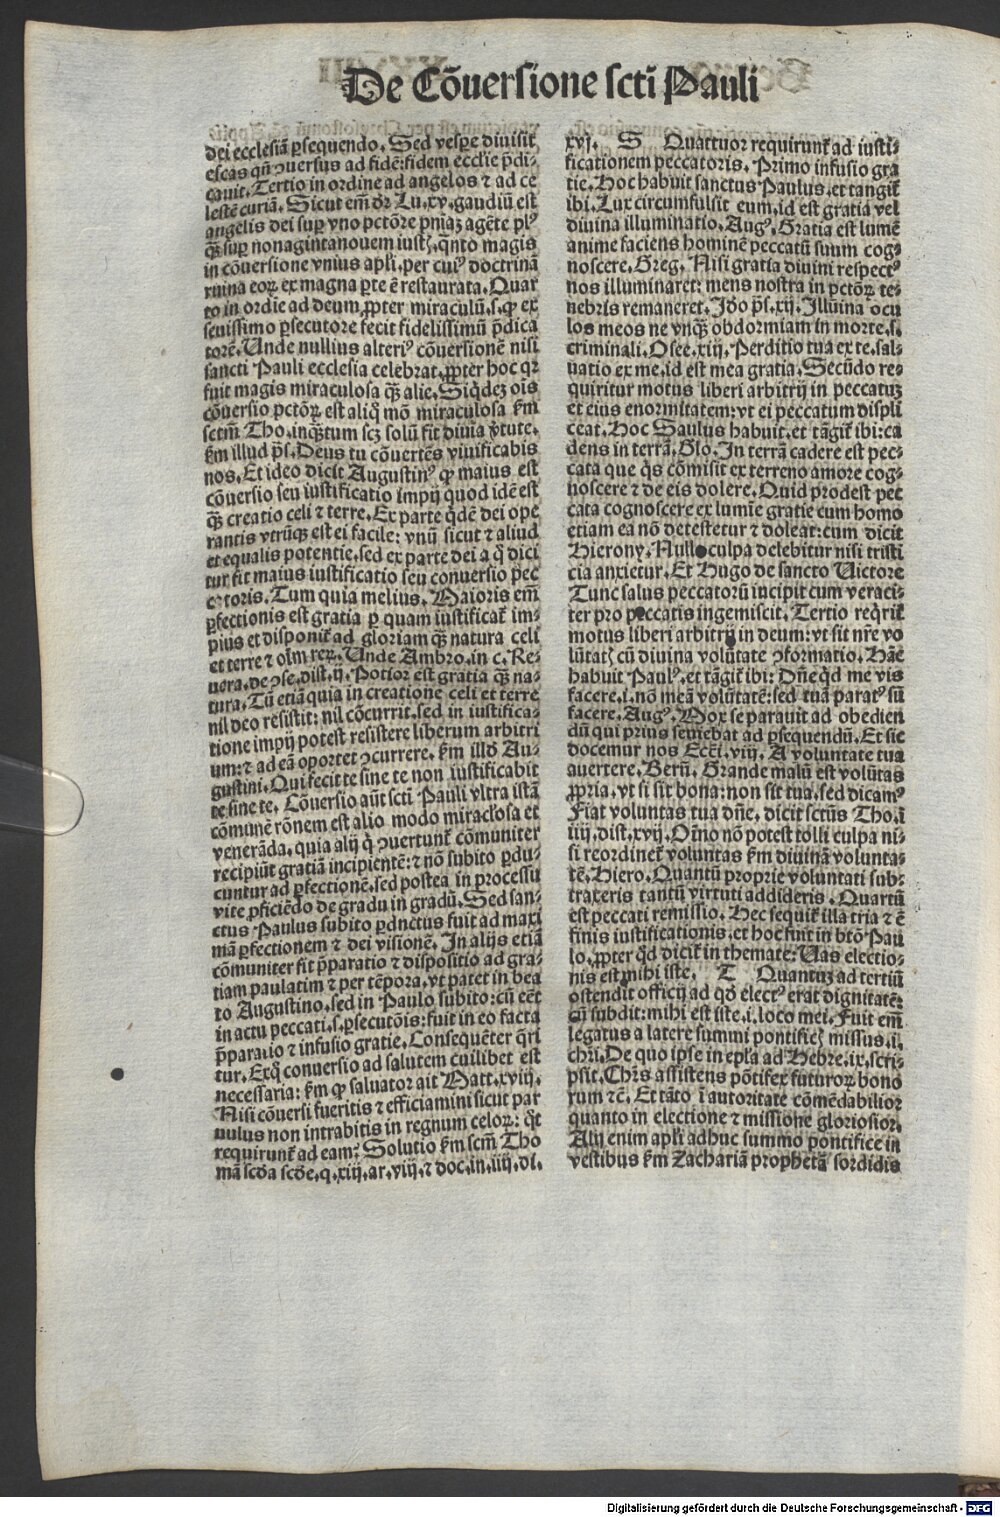 De Cõuersione sctĩ Pauli
dei ecclesiã ꝑsequendo. Sed vesꝑe diuisit
escas qñ ꝯuersus ad fidẽ: fidem eccl'ie p̃di-
cauit. Tertio in ordine ad angelos ⁊ ad ce
lestẽ curiã. Sicut em̃ dr̃ Lu. xv. gaudiũ est
angelis dei suꝑ vno pctõre pniaꝫ agẽte plꝰ
q̃ꝫ suꝑ nonagintanouem iustꝭ, q̃nto magis
in cõuersione vnius apl'i, per cuiꝰ doctrinã
ruina eoꝝ ex magna ꝑte ẽ restaurata. Quar
to in ordĩe ad deum ꝓpter miraculũ .s. ꝙ ex
seuissimo ꝑsecutore fecit fidelissimũ p̃dica
torẽ. Unde nullius alteriꝰ cõuersionẽ nisi
sancti Pauli ecclesia celebrat, ꝓpter hoc qꝛ
fuit magis miraculosa q̃ꝫ alie. Siq̃deꝫ oĩs
cõuersio pctõꝝ est aliq̃ mõ miraculosa ẜm
sctm̃ Tho. inq̃ꝫtum scꝫ solũ fit diuĩa ṽtute.
ẜm illud ps̃. Deus tu cõuertẽs viuificabis
nos. Et ideo dicit Augustinꝰ ꝙ maius est
cõuersio seu iustificatio impij quod idẽ est
q̃ꝫ creatio celi ⁊ terre. Ex parte q̃dẽ dei ope
rantis vtrũqꝫ est ei facile: vnũ sicut ⁊ aliud
et equalis potentie, sed ex parte dei a q̃ dici
tur fit maius iustificatio seu conuersio pec
catoris. Tum quia melius. Maioris em̃
ꝑfectionis est gratia ꝑ quam iustificat̃ im-
pius et disponit̃ ad gloriam q̃ꝫ natura celi
et terre ⁊ oĩm reꝝ. Unde Ambro. in c. Re-
uera. de ꝯse. dist. ij. Potior est gratia q̃ꝫ na-
tura. Tũ etiã quia in creatione celi et terre
nil deo resistit: nil cõcurrit, sed in iustifica-
tione impij potest resistere liberum arbitri
um: ⁊ ad eã oportet ꝯcurrere. ẜm illđ Au-
gustini. Qui fecit te sine te non iustificabit
te sine te. Cõuersio aũt sctĩ Pauli vltra istã
cõmunẽ rõnem est alio modo miracl'osa et
venerãda, quia alij q̃ ꝯuertunt̃ cõmuniter
recipiũt gratiã incipientẽ: ⁊ nõ subito ꝑdu-
cuntur ad ꝑfectionẽ, sed postea in processu
vite ꝓficiẽdo de gradu in gradũ. Sed san-
ctus Paulus subito ꝑductus fuit ad maxi
mã ꝑfectionem ⁊ dei visionẽ. In alijs etiã
cõmuniter fit p̃paratio ⁊ dispositio ad gra-
tiam paulatim ⁊ per tẽpora, vt patet in bea
to Augustino, sed in Paulo subito: cũ eẽt
in actu peccati .s. ꝑsecutõis: fuit in eo facta
p̃paratio ⁊ infusio gratie. Consequẽter q̃ri
tur. Ex q̃ conuersio ad salutem cuilibet est
necessaria: ẜm ꝙ saluator ait Matt. xviij.
Nisi cõuersi fueritis ⁊ efficiamini sicut par
uulus non intrabitis in regnum celoꝝ: q̃t
requirunt̃ ad eam: Solutio ẜm scm̃ Tho
mã scđa scđe. q. xiij. ar. viij. ⁊ doc. in. iiij. di.
xvj. S Quattuor requirunt̃ ad iusti-
ficationem peccatoris. Primo infusio gra
tie. Hoc habuit sanctus Paulus, et tangit̃
ibi. Lux circumfulsit eum, id est gratia vel
diuina illuminatio. Augꝰ. Gratia est lumẽ
anime faciens hominẽ peccatũ suum cog-
noscere. Greg. Nisi gratia diuini respectꝰ
nos illuminaret: mens nostra in pctõꝝ te-
nebris remaneret. Iđo ps̃. xij. Illũina ocu
los meos ne vnqꝫ obdormiam in morte .s.
criminali. Osee. xiij. Perditio tua ex te, sal-
uatio ex me, id est mea gratia. Secũdo re-
quiritur motus liberi arbitrij in peccatuꝫ
et eius enormitatem: vt ei peccatum displi
ceat. Hoc Saulus habuit, et tãgit̃ ibi: ca
dens in terrã. Glo. In terrã cadere est pec-
cata que q̃s cõmisit ex terreno amore cog-
noscere ⁊ de eis dolere. Quid prodest pec
cata cognoscere ex lumĩe gratie eum homo
etiam ea nõ detestetur ⁊ doleat: cum dicit
Hierony. Nulla culpa delebitur nisi tristi
cia anxietur. Et Hugo de sancto Uictore
Tunc salus peccatorũ incipit cum veraci-
ter pro peccatis ingemiscit. Tertio req̃rit̃
motus liberi arbitrij in deum: vt sit nr̃e vo
lũtatꝭ cũ diuina volũtate ꝯformatio. Hãc
habuit Paulꝰ, et tãgit̃ ibi: Dñe q̃d me vis
facere .i. nõ meã volũtatẽ: sed tuã paratꝰ sũ
facere. Augꝰ. Mox se parauit ad obedien
dũ qui prius seuiebat ad ꝑsequendũ. Et sic
docemur nos Ecci. viij. A voluntate tua
auertere. Berñ. Grande malũ est volũtas
ꝓpria, vt si sit bona: non sit tua, sed dicamꝰ
Fiat voluntas tua dñe. dicit sctũs Tho. ĩ
iiij. dist. xvij. Oĩno nõ potest tolli culpa ni-
si reordinet̃ voluntas ẜm diuinã volunta-
tẽ. Hiero. Quantũ proprie voluntati sub-
traxeris tantũ virtuti addideris. Quartũ
est peccati remissio. Hec sequit̃ illa tria ⁊ ẽ
finis iustificationis, et hoc fuit in btõ Pau
lo, ꝓpter q̃d dicit̃ in themate: Uas electio-
nis est mihi iste. T Quantuꝫ ad tertiũ
ostendit officij ad qđ electꝰ erat dignitatẽ:
cũ subdit: mihi est iste .i. loco mei. Fuit em̃
legatus a latere summi pontificꝭ missus .i.
chr̃i. De quo ipse in ep̃la ad Hebre. ix. scri-
psit. Chr̃s assistens põtifex futuroꝝ bono
rum ⁊c̃. Et tãto ĩ autoritate cõmẽdabilior
quanto in electione ⁊ missione gloriosior.
Alij enim apl'i adhuc summo pontifice in
vestibus ẜm Zachariã prophetã sordidis
Digitalisierung gefördert durch die Deutsche Forschungsgemeinschaft - DFG